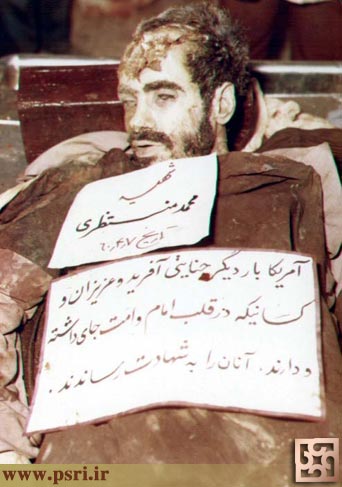 شهید
محمد منتظری
تاریخ ۶۰،۴،۷
آمریکا بار دیگر جنایتی آفرید و عزیزان و
کسانیکه در قلب امام و امت جای داشته
و دارند، آنان را به شهادت رساندند.
www.psri.ir